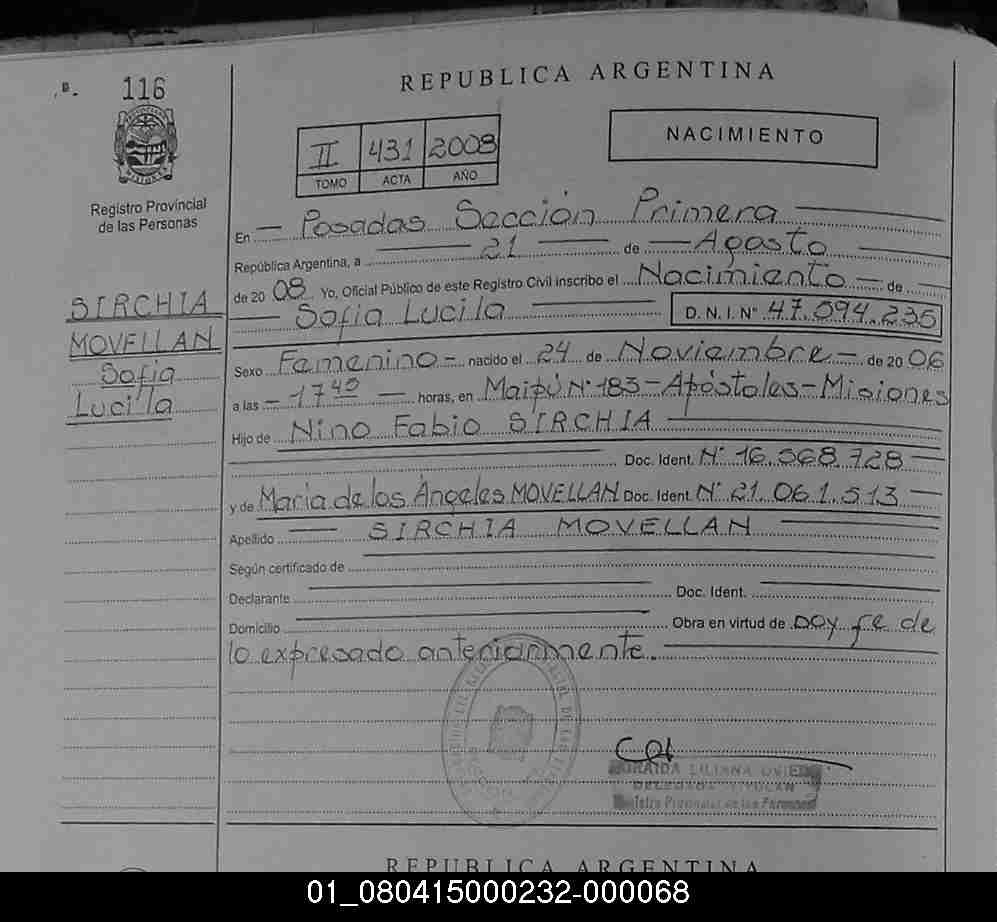 116
REPUBLICA ARGENTINA
NACIMIENTO
II 431 2008
TOMO ACTA AÑO
Registro Provincial
de las Personas
En Posadas Sección Primera
República Argentina, a 21 de Agosto
de 2008 Yo, Oficial Público de este Registro Civil inscribo el Nacimiento de
Sofia Lucila D. N. I. N° 47.094.235
SIRCHIA
MOVELLAN
Sofia
Lucila
Sexo Femenino nacido el 24 de Noviembre de 2006
a las 17 45 horas, en Maipú N° 183-Apóstoles-Misiones
Hijo de Nino Fabio SIRCHIA
Doc. Ident. N° 16.568.728
y de Maria de los Angeles MOVELLAN Doc. Ident. N° 21.061.513
Apellido SIRCHIA MOVELLAN
Según certificado de
Declarante Doc. Ident.
Domicilio Obra en virtud de Doy fe de
lo expresado anteriormente.
LILIANA OVIEDO
DELEGADA TITULAR
Registro Provincial de las Personas
REPUBLICA ARGENTINA
01_080415000232-000068